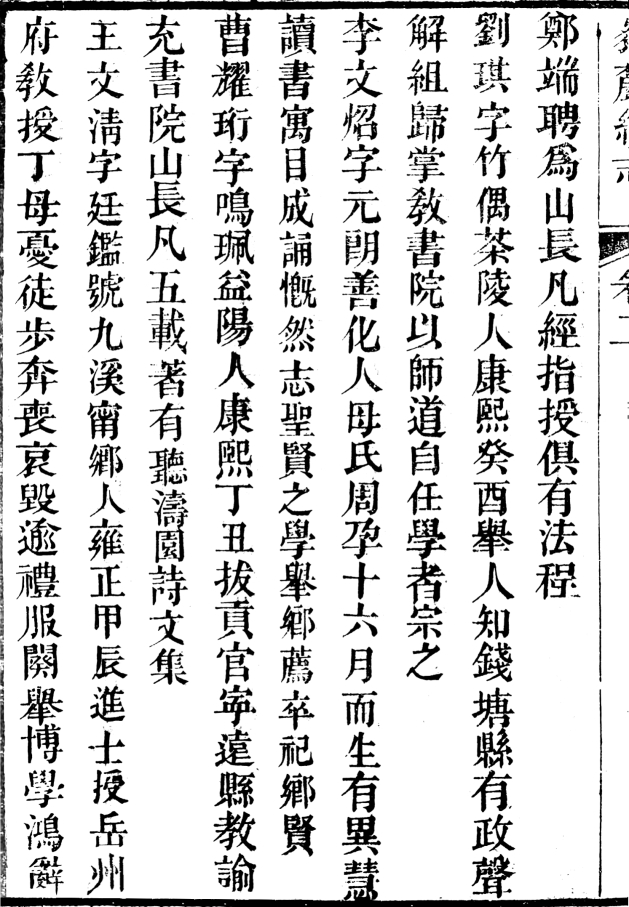 卷二
鄭端聘爲山長凡經指授俱有法程
劉琪字竹偶茶陵人康熙癸酉舉人知錢塘縣有政聲
解組歸掌教書院以師道自任學者宗之
李文炤字元朗善化人母氏周孕十六月而生有異慧
讀書寓目成誦慨然志聖賢之學舉鄉薦卒祀鄉賢
曹耀珩字鳴珮益陽人康熙丁丑拔貢官寧遠縣教諭
充書院山長凡五載著有聽濤園詩文集
王文清字廷鑑號九溪甯鄉人雍正甲辰進士授岳州
府教授丁母憂徒步奔喪哀毀逾禮服闋舉博學鴻辭